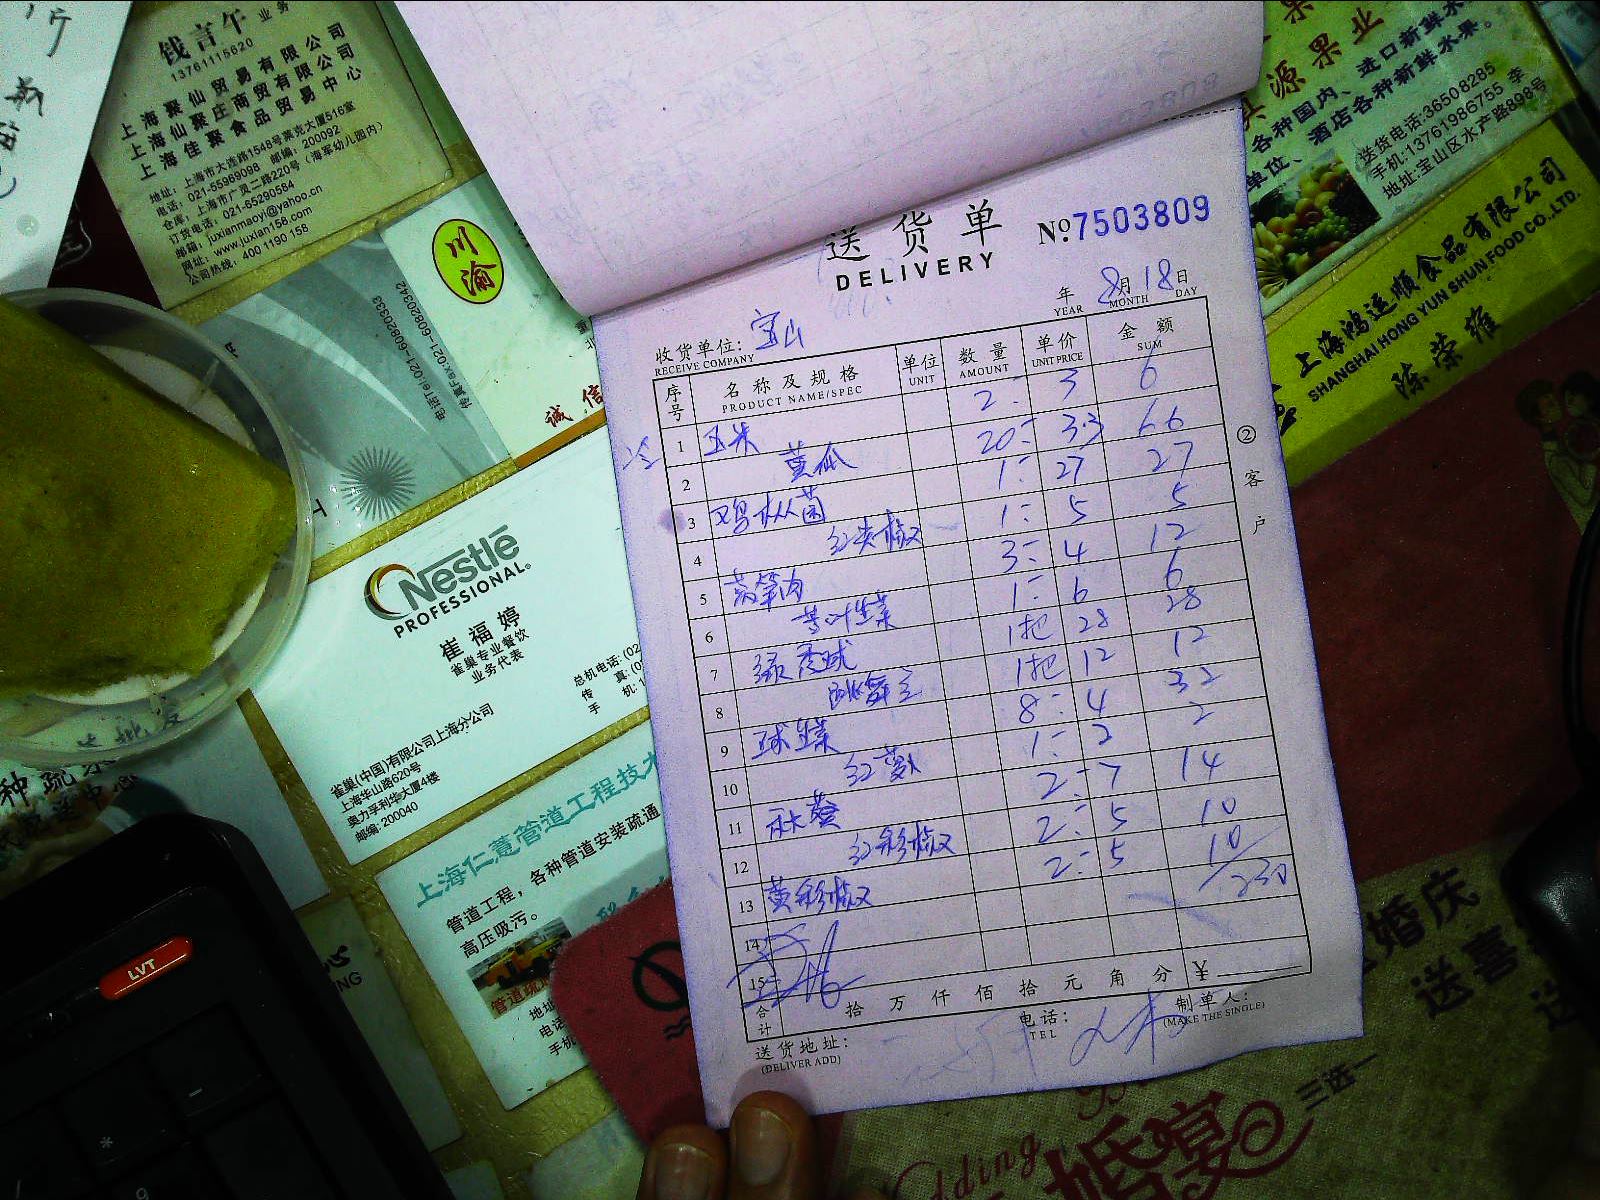 钱言午 业务
13761115620
上海聚仙贸易有限公司
上海仙聚庄商贸有限公司
上海佳聚食品贸易中心
地址：上海市大连路1548号莱克大厦516室
电话：021-55969098 邮编：200092
仓库：上海市广灵二路220号（海军幼儿园内）
订货电话：021-65290584
邮箱：juxianmaoyi@yahoo.cn
网址：www.juxian158.com
公司热线：400 1190 158
川渝
电话Tel:021-60820333
传真Fax:021-60820342
诚信
Nestlé
PROFESSIONAL
崔福婷
雀巢专业餐饮
业务代表
总机电话: (02
传 真: (0
手 机: 1
雀巢(中国)有限公司上海分公司
上海华山路620号
奥力孚利华大厦4楼
邮编: 200040
上海仁薏管道工程技术
管道工程，各种管道安装疏通
高压吸污。
管道疏
地址
电话
手机
LVT
送货单
DELIVERY
No.7503809
年 8月18日
YEAR MONTH DAY
收货单位: 宝山
RECEIVE COMPANY
序号 名称及规格 单位 数量 单价 金额
PRODUCT NAME/SPEC UNIT AMOUNT UNIT PRICE SUM
1 玉米 2 3 6
2 黄瓜 20 3.3 66
3 鸡枞菌 1 27 27
4 红尖椒 1 5 5
5 莴笋肉 3 4 12
6 苦叶生菜 1 6 6
7 绿秀球 1把 28 28
8 跳舞兰 1把 12 12
9 球生菜 8 4 32
10 红 1 2 2
11 秋葵 2 7 14
12 红彩椒 2 5 10
13 黄彩椒 2 5 10
230
14
15
合计 拾万仟佰拾元角分 ¥
送货地址:
(DELIVER ADD)
电话:
TEL
制单人:
(MAKE THE SINGLE)
② 客户
源果业
各种国内、进口新鲜水
单位、酒店各种新鲜水果。
送货电话:36508285
手机:13761986755 李
地址:宝山区水产路898号
上海鸿运顺食品有限公司
SHANGHAI HONG YUN SHUN FOOD CO.,LTD.
陈荣雍
婚庆
送喜
三选一
婚宴